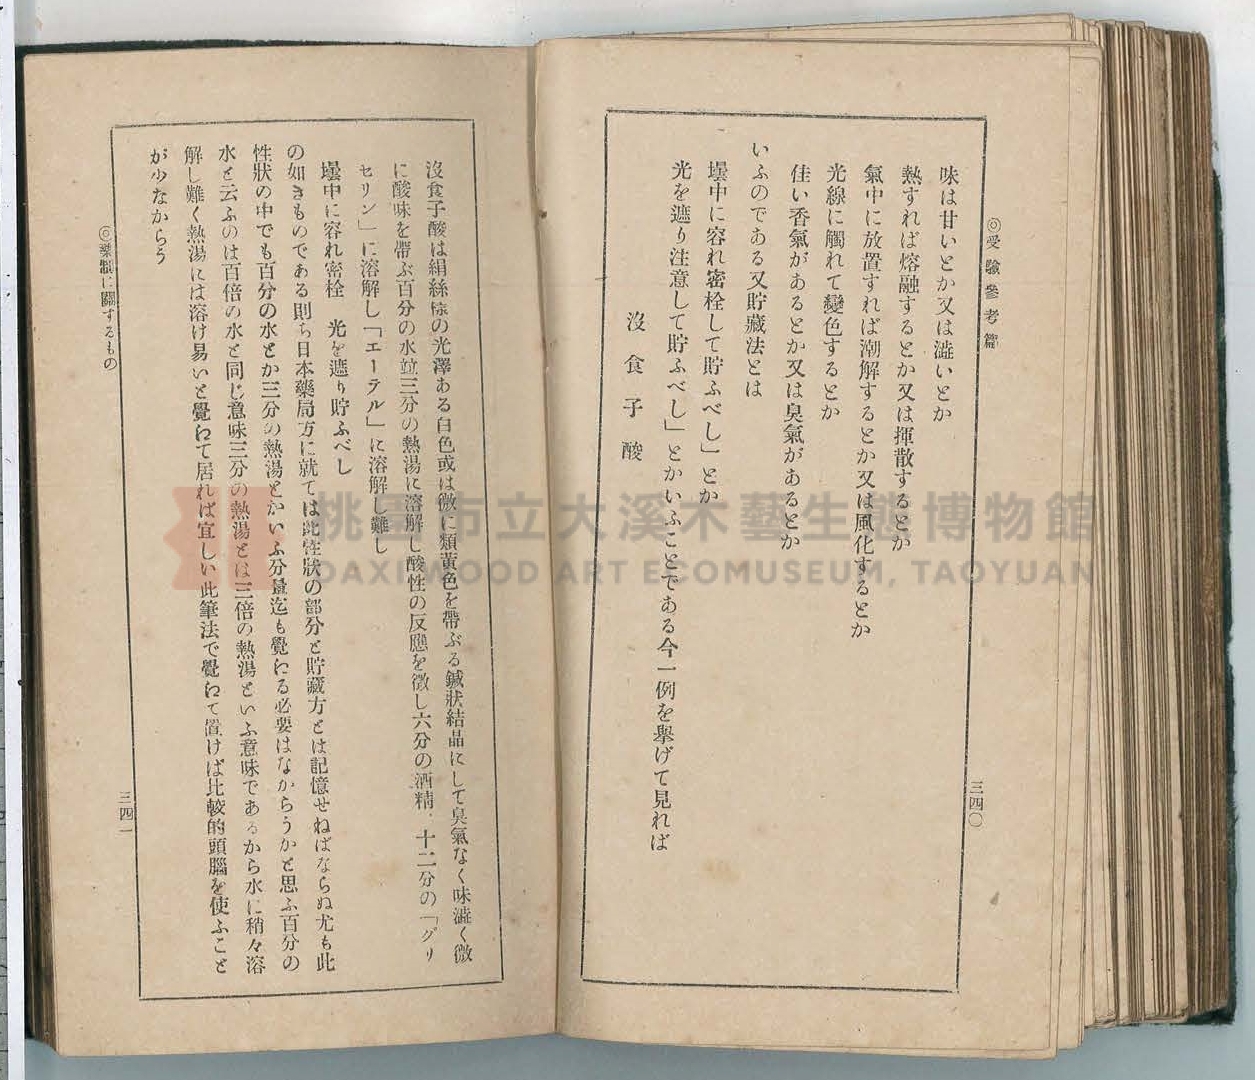 ◎受驗參考篇
味は甘いとか又は澁いとか
熱すれば熔融するとか又は揮散するとか
氣中に放置すれば潮解するとか又は風化するとか
光線に觸れて變色するとか
佳い香氣があるとか又は臭氣があるとか
いふのである又貯藏法とは
壜中に容れ密栓して貯ふべし」とか
光を遮り注意して貯ふべし」とかいふことである今一例を擧げて見れば
沒食子酸
三四〇
沒食子酸は絹絲樣の光澤ある白色或は微に類黃色を帶ぶる鍼狀結晶にして臭氣なく味澁く微
に酸味を帶ぶ百分の水竝三分の熱湯に溶解し酸性の反應を徵し六分の酒精、十二分の「グリ
セリン」に溶解し「エーテル」に溶解し難し
壜中に容れ密栓 光を遮り貯ふべし
の如きものである則ち日本藥局方に就ては此性狀の部分と貯藏方とは記憶せねばならぬ尤も此
性狀の中でも百分の水とか三分の熱湯とかいふ分量迄も覺ゆる必要はなからうかと思ふ百分の
水と云ふのは百倍の水と同じ意味三分の熱湯とは三倍の熱湯といふ意味であるから水に稍々溶
解し難く熱湯には溶け易いと覺ゆて居れば宜しい此筆法で覺ゆて置けば比較的頭腦を使ふこと
が少なからう
◎藥劑に關するもの
三四一
桃園市立大溪木藝生態博物館
DAXI WOOD ART ECOMUSEUM, TAOYUAN